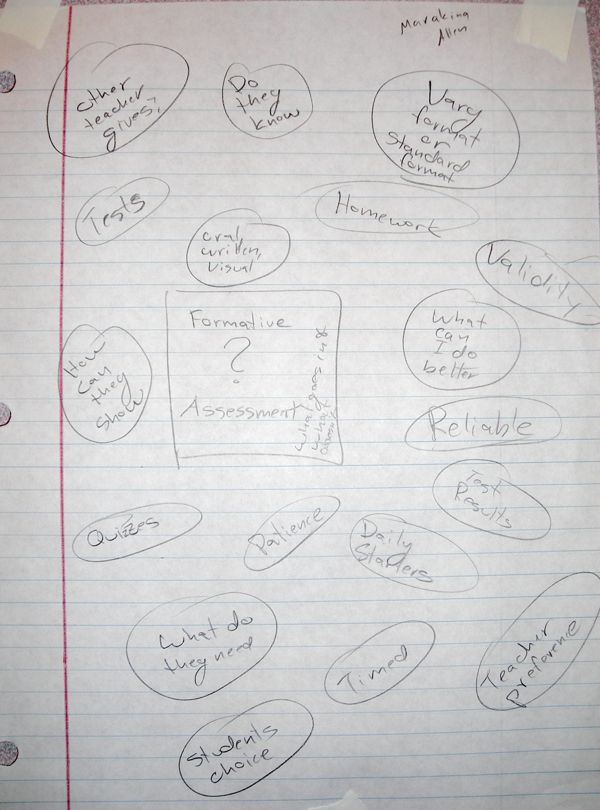 Allen
Other
teacher
gives;
Do
they
know
Vary
format
or
standard
format
Tests
Homework
oral
written,
visual
Validity
Formative
?
Assessment
what goes in &
what
doesn't
What
can
I do
better
How
can
they
show
Reliable
Test
Results
Quizzes
Patience
Daily
Starters
What do
they need
Timed
Teacher
preference
Students
choice